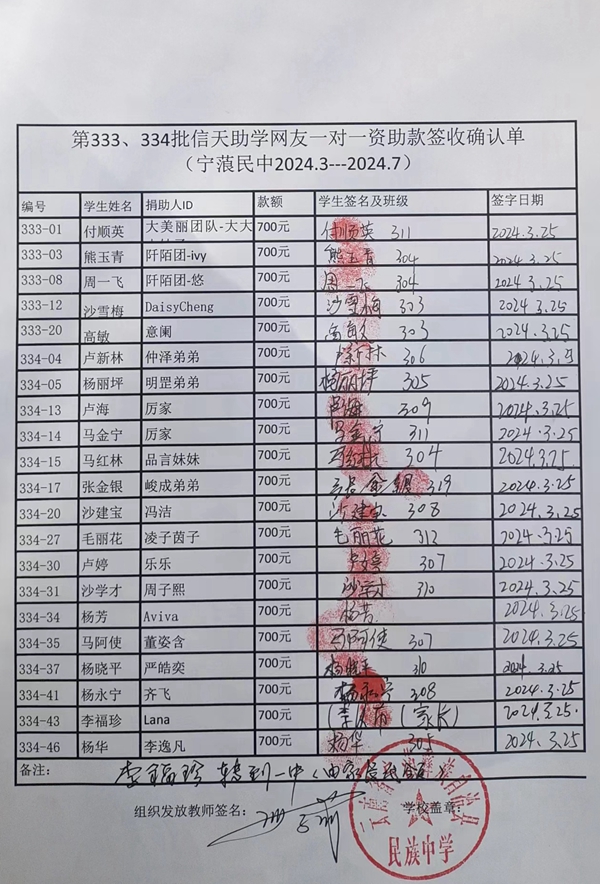 第333、334批信天助学网友一对一资助款签收确认单
（宁蒗民中2024.3---2024.7）
编号 学生姓名 捐助人ID 款额 学生签名及班级 签字日期
333-01 付顺英 大美丽团队-大大 700元 付顺英 311 2024.3.25
333-03 熊玉青 阡陌团-ivy 700元 熊玉青 304 2024.3.25
333-08 周一飞 阡陌团-悠 700元 周一飞 304 2024.3.25
333-12 沙雪梅 DaisyCheng 700元 沙雪梅 303 2024.3.25
333-20 高敏 意阑 700元 高敏 303 2024.3.25
334-04 卢新林 仲泽弟弟 700元 卢新林 306 2024.3.25
334-05 杨丽坪 明罡弟弟 700元 杨丽坪 305 2024.3.25
334-13 卢海 厉家 700元 卢海 309 2024.3.25
334-14 马金宁 厉家 700元 马金宁 311 2024.3.25
334-15 马红林 品言妹妹 700元 马红林 304 2024.3.25
334-17 张金银 峻成弟弟 700元 张金银 319 2024.3.25
334-20 沙建宝 冯洁 700元 沙建宝 308 2024.3.25
334-27 毛丽花 凌子茵子 700元 毛丽花 312 2024.3.25
334-30 卢婷 乐乐 700元 卢婷 307 2024.3.25
334-31 沙学才 周子熙 700元 沙学才 310 2024.3.25
334-34 杨芳 Aviva 700元 杨芳 2024.3.25
334-35 马阿使 董姿含 700元 马阿使 307 2024.3.25
334-37 杨晓平 严皓奕 700元 杨晓平 310 2024.3.25
334-41 杨永宁 齐飞 700元 杨永宁 308 2024.3.25
334-43 李福珍 Lana 700元 （家长） 2024.3.25
334-46 杨华 李逸凡 700元 杨华 305 2024.3.25
备注： 李福珍 转到一中
组织发放教师签名： 学校盖章：
民族中学